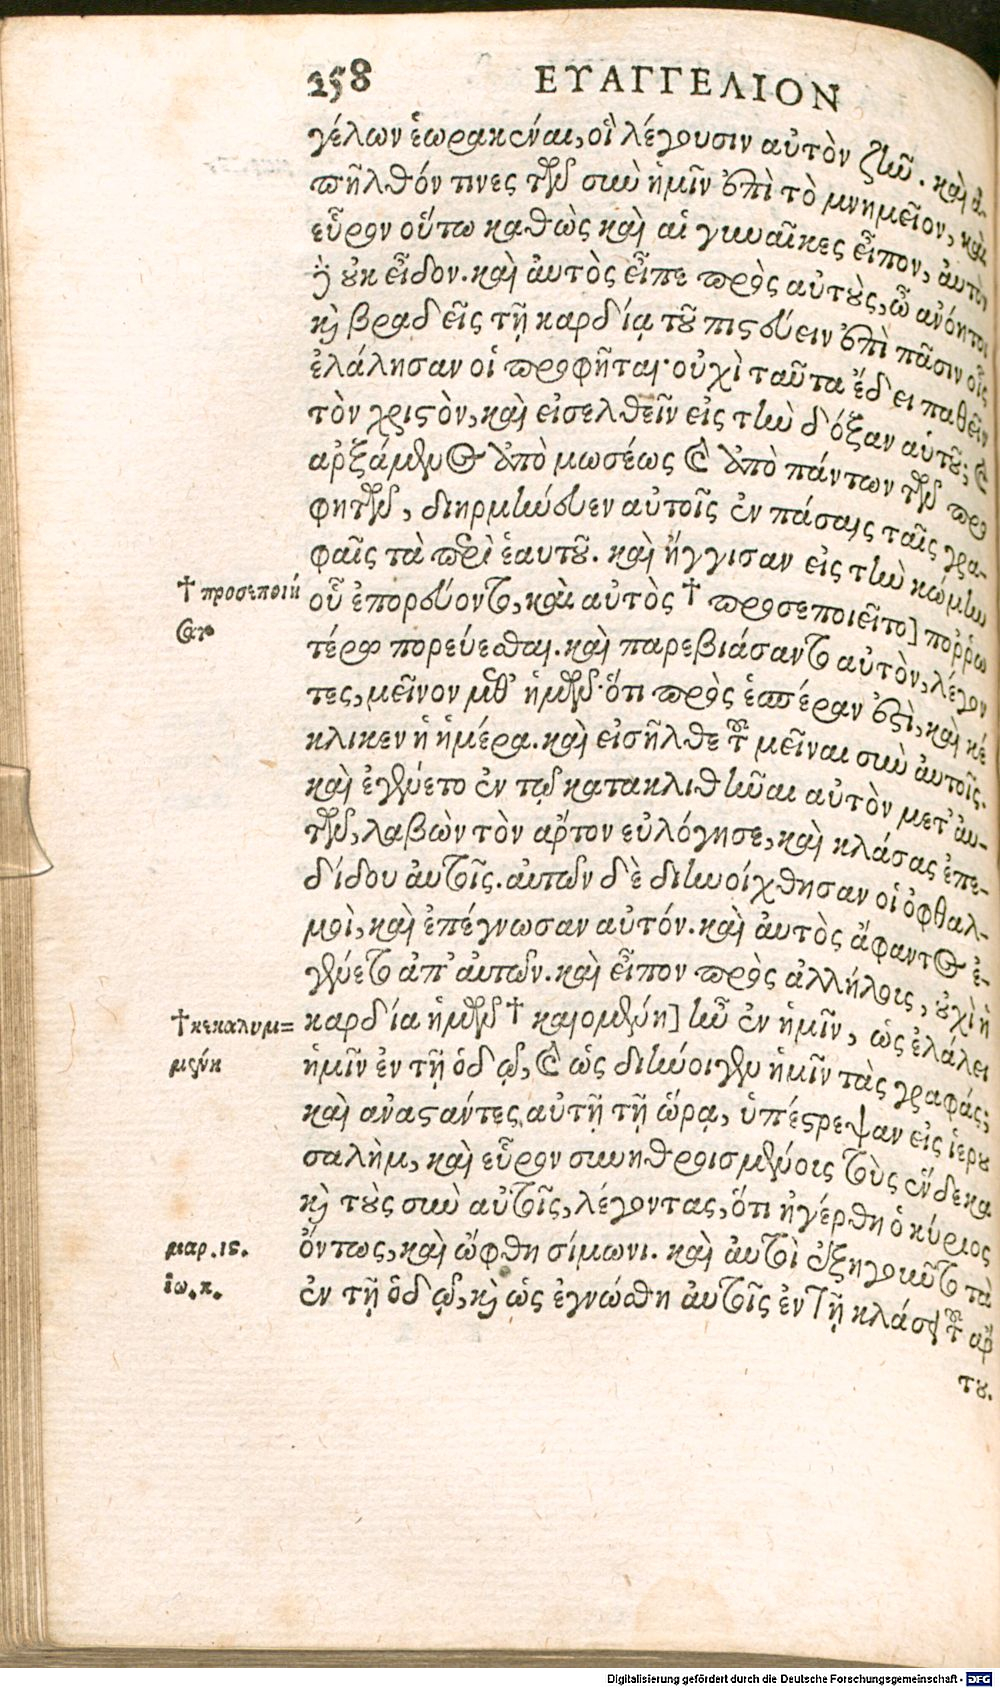 258 ΕΥΑΓΓΕΛΙΟΝ
γέλων ἑωρακέναι, οἳ λέγουσιν αὐτὸν ζῆν. καὶ ἀ-
πῆλθόν τινες τῶν σὺν ἡμῖν ἐπὶ τὸ μνημεῖον, καὶ
εὗρον οὕτω καθὼς καὶ αἱ γυναῖκες εἶπον, ἀυτὸν
δὲ οὐκ εἶδον. καὶ ἀυτὸς εἶπε πρὸς αὐτοὺς, ὦ ανόητοι
καὶ βραδεῖς τῇ καρδίᾳ τοῦ πιστεύειν ἐπὶ πᾶσιν οἷς
ἐλάλησαν οἱ προφῆται· οὐχὶ ταῦτα ἔδει παθεῖν
τὸν χριστὸν, καὶ εἰσελθεῖν εἰς τὴν δόξαν αὑτοῦ; καὶ
αρξάμενος ἀπὸ μωσέως καὶ ἀπὸ πάντων τῶν προ
φητῶν, διηρμήνευεν αὐτοῖς ἐν πάσαις ταῖς γρα-
φαῖς τὰ περὶ ἑαυτοῦ. καὶ ἤγγισαν εἰς τὴν κώμην
† προσεποιή
σατο
οὗ ἐπορεύοντο, καὶ αὐτὸς † προσεποιεῖτο] ποῤῥω
τέρω πορεύεσθαι. καὶ παρεβιάσαντο αὐτὸν, λέγον
τες, μεῖνον μεθ' ἡμῶν· ὅτι πρὸς ἑσπέραν ἐστὶ, καὶ κέ
κλικεν ἡ ἡμέρα. καὶ εἰσῆλθε τοῦ μεῖναι σὺν ἀυτοῖς.
καὶ ἐγένετο ἐν τῷ κατακλιθῆναι αὐτὸν μετ' ἀυ-
τῶν, λαβὼν τὸν αρτον εὐλόγησε, καὶ κλάσας ἐπε-
δίδου ἀυτοῖς. αὐτῶν δὲ διηνοίχθησαν οἱ ὀφθαλ-
μοὶ, καὶ ἐπέγνωσαν αὐτόν. καὶ ἀυτὸς ἄφαντος ἐ-
γένετο ἀπ' ἀυτῶν. καὶ εἶπον πρὸς ἀλλήλοις, οὐχὶ ἡ
†κεκαλυμ=
μένη
καρδία ἡμῶν † καιομένη] ἦν ἐν ἡμῖν, ὡς ἐλάλει
ἡμῖν ἐν τῇ ὁδῷ, καὶ ὡς διήνοιγεν ἡμῖν τὰς γραφάς;
καὶ αναστάντες αὐτῇ τῇ ὥρᾳ, ὑπέστρεψαν εἰς ἱερου
σαλὴμ, καὶ εὗρον συνηθροισμένοις τοὺς ἕνδεκα
καὶ τοὺς σὺν αὐτοῖς, λέγοντας, ὅτι ἠγέρθη ὁ κύριος
μαρ. ις.
ὄντως, καὶ ὤφθη σίμωνι. καὶ ἀυτοὶ ἐξηγοῦντο τὰ
ἰω. κ.
ἐν τῇ ὁδῷ, καὶ ὡς ἐγνώσθη ἀυτοῖς ἐν τῇ κλάσει τοῦ αρ
του.
Digitalisierung gefördert durch die Deutsche Forschungsgemeinschaft - DFG